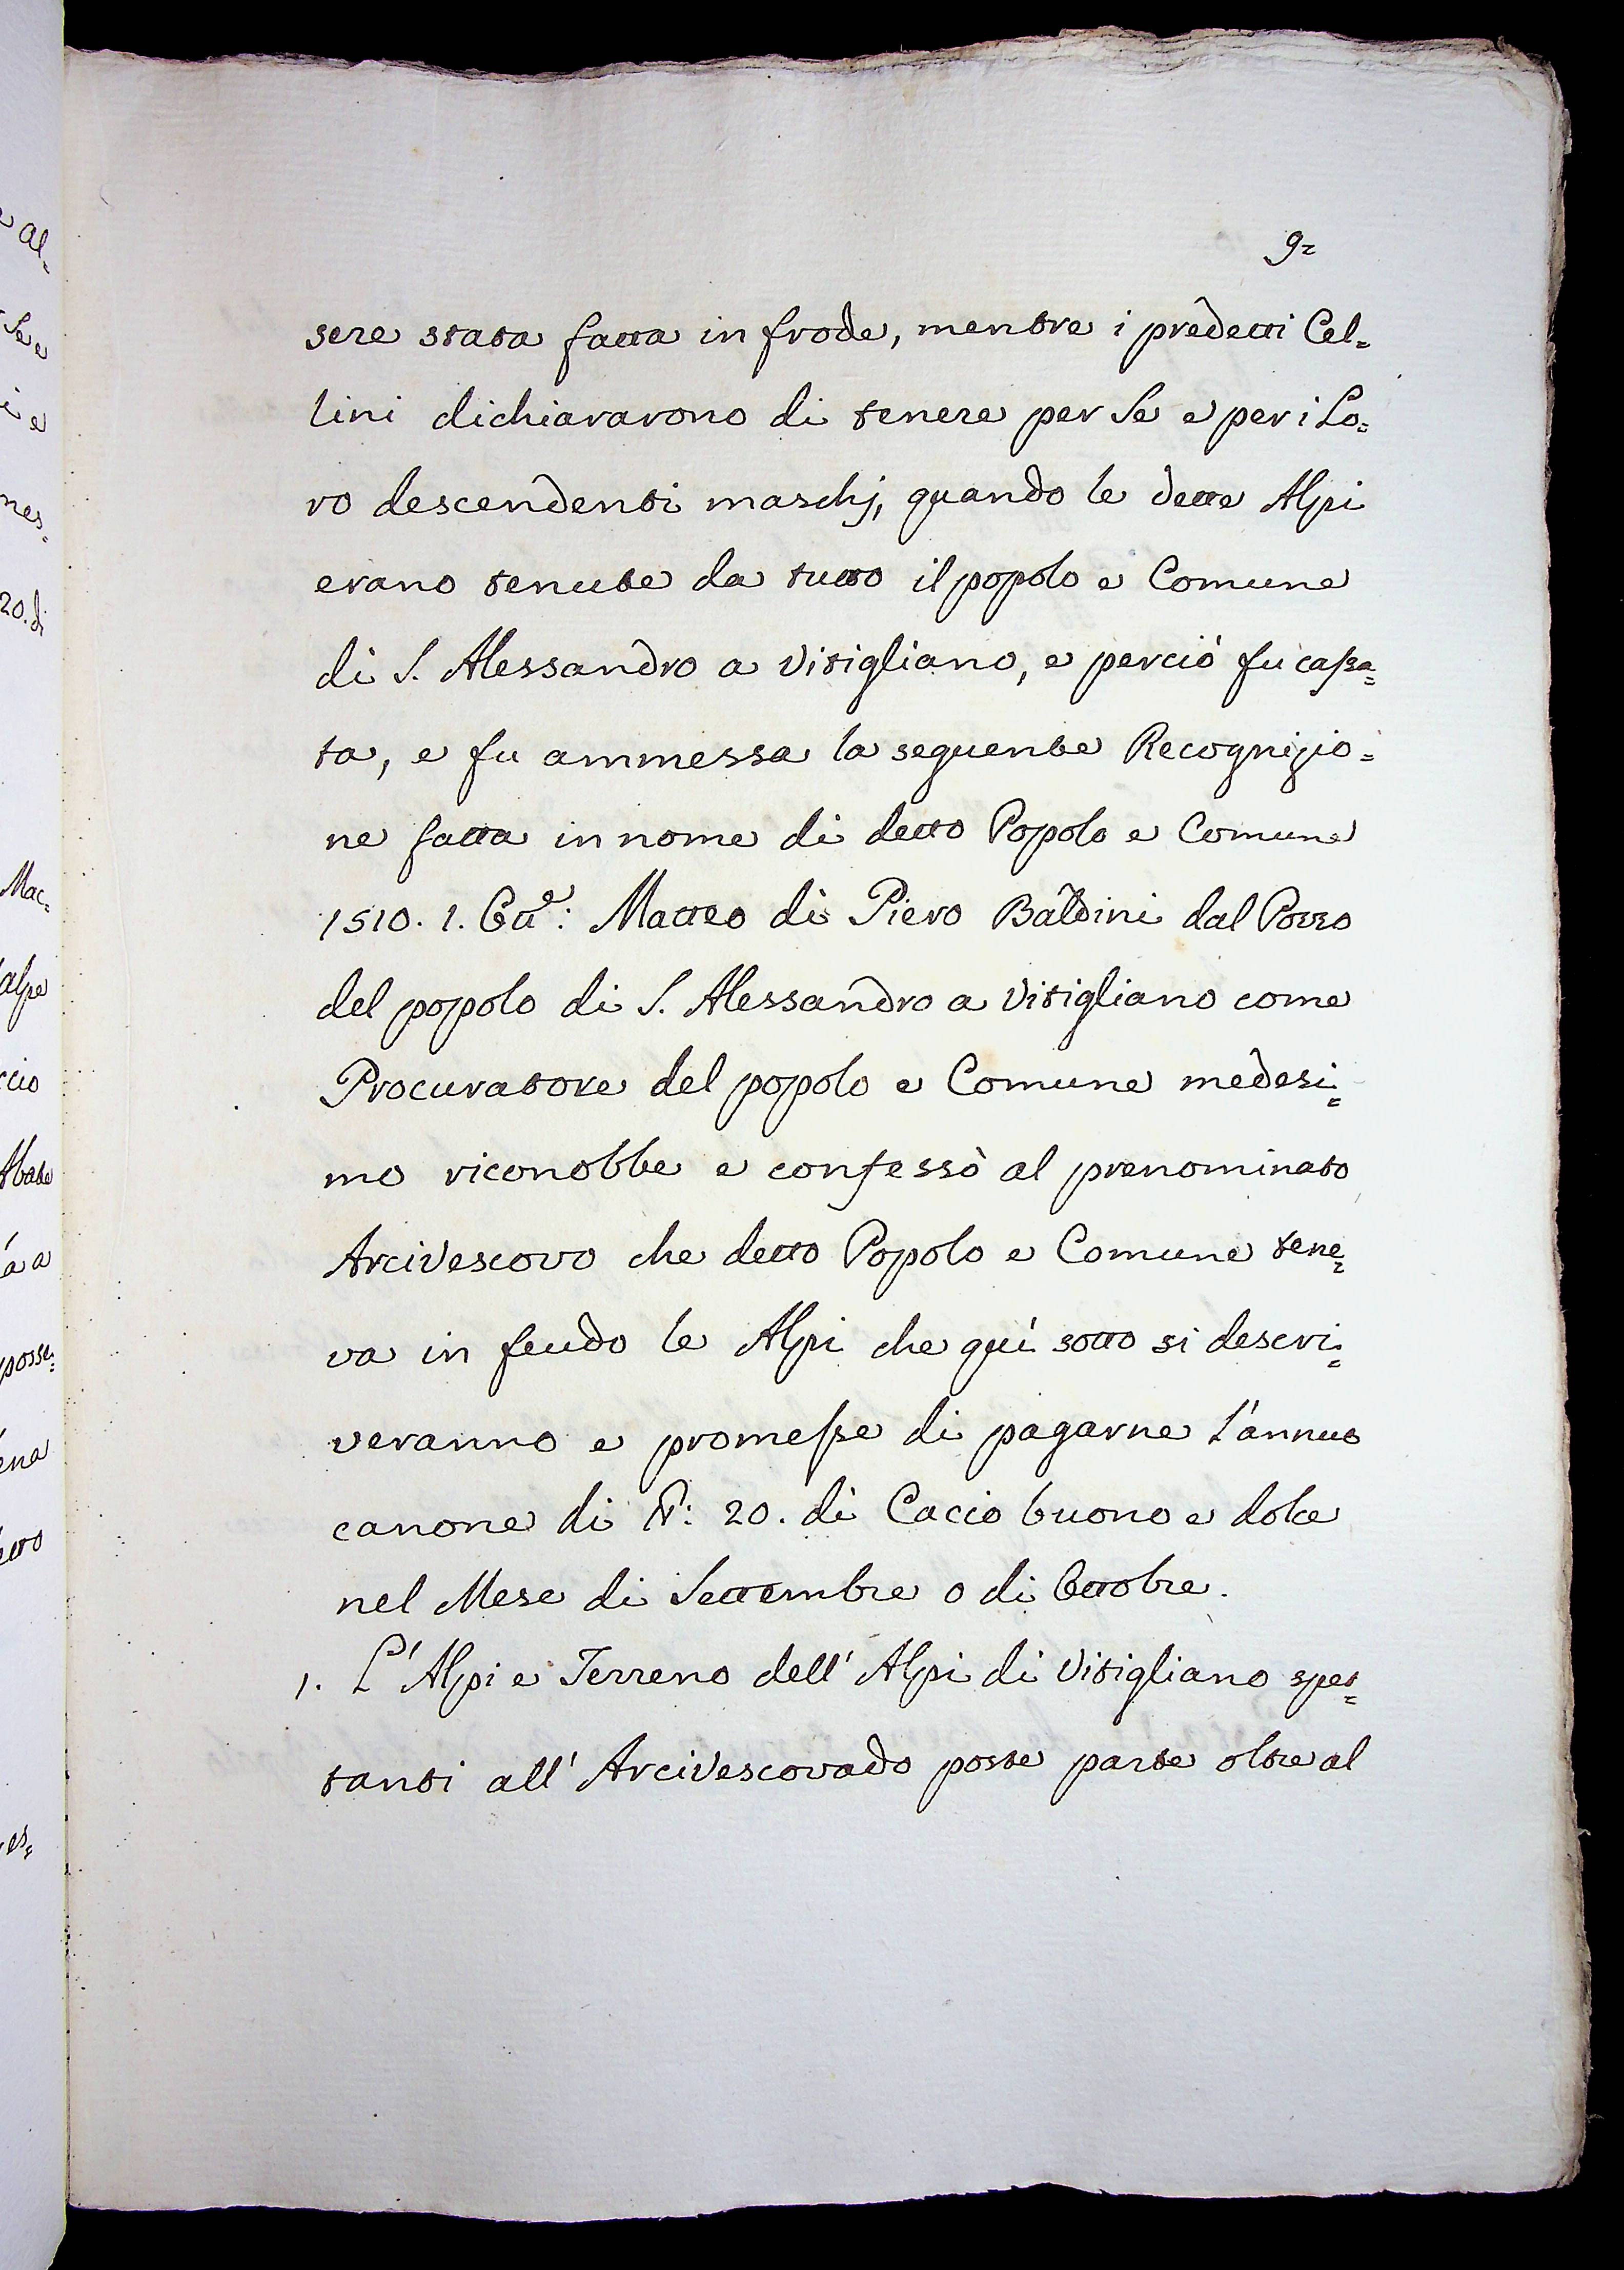 9=
sere stata fatta in frode, mentre i predetti Cel=
lini dichiararono di tenere per Se e per i Lo=
ro descendenti maschj, quando le dette Alpi
erano tenute da tutto il popolo e Comune
di S. Alessandro a Vitigliano, e perciò fu cassa=
ta, e fu ammessa la seguente Recognizio=
ne fatta in nome di detto Popolo e Comune
1510. 1. Ott.e: Matteo di Piero Baldini dal Pozzo
del popolo di S. Alessandro a Vitigliano come
Procuratore del popolo e Comune medesi=
mo riconobbe e confessò al prenominato
Arcivescovo che detto Popolo e Comune tene=
va in feudo le Alpi che quì sotto si descri=
veranno e promesse di pagarne l'annuo
canone di 20. di Cacio buono e dolce
nel Mese di Settembre o di Ottobre.
1. L'Alpi e Terreno dell'Alpi di Vitigliano spet=
tanti all'Arcivescovado poste parte oltre al
al=
Se e
i e
mes=
20. di
Mac=
alpe
cio
Abate
à a
posse=
ena
etto
es=